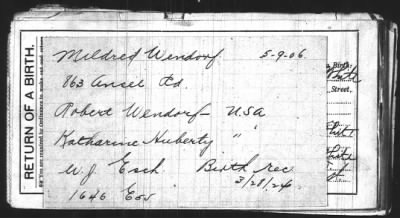 RETURN OF A BIRTH.
Mildred Wendorf 5-9-06
863 Ansel Rd.
Robert Wendorf - USA
Katharine Huberty " "
W. J. Esch. Birth Rec.
3/28/24
1646 E55
Birth:
White
Street.
White